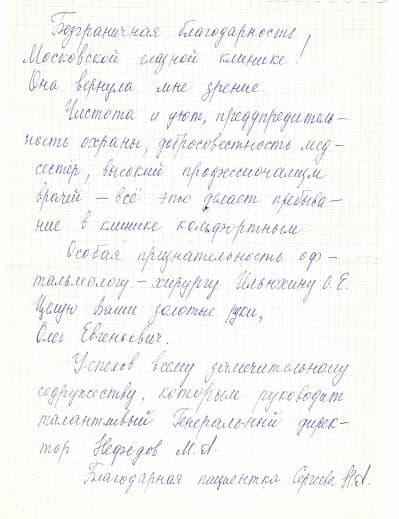 Безграничная благодарность
Московской глазной клинике!
Она вернула мне зрение.
Чистота и уют, предупредитель-
ность охраны, добросовестность мед-
сестёр, высокий профессионализм
врачей – всё это делает пребыва-
ние в клинике комфортным.
Особая признательность оф-
тальмологу – хирургу Ильюхину О.Е.
Целую Ваши золотые руки,
Олег Евгеньевич.
Успехов всему замечательному
содружеству, которым руководит
талантливый Генеральный дирек-
тор Нефёдов М.А.
Благодарная пациентка Сергеева Н.А.